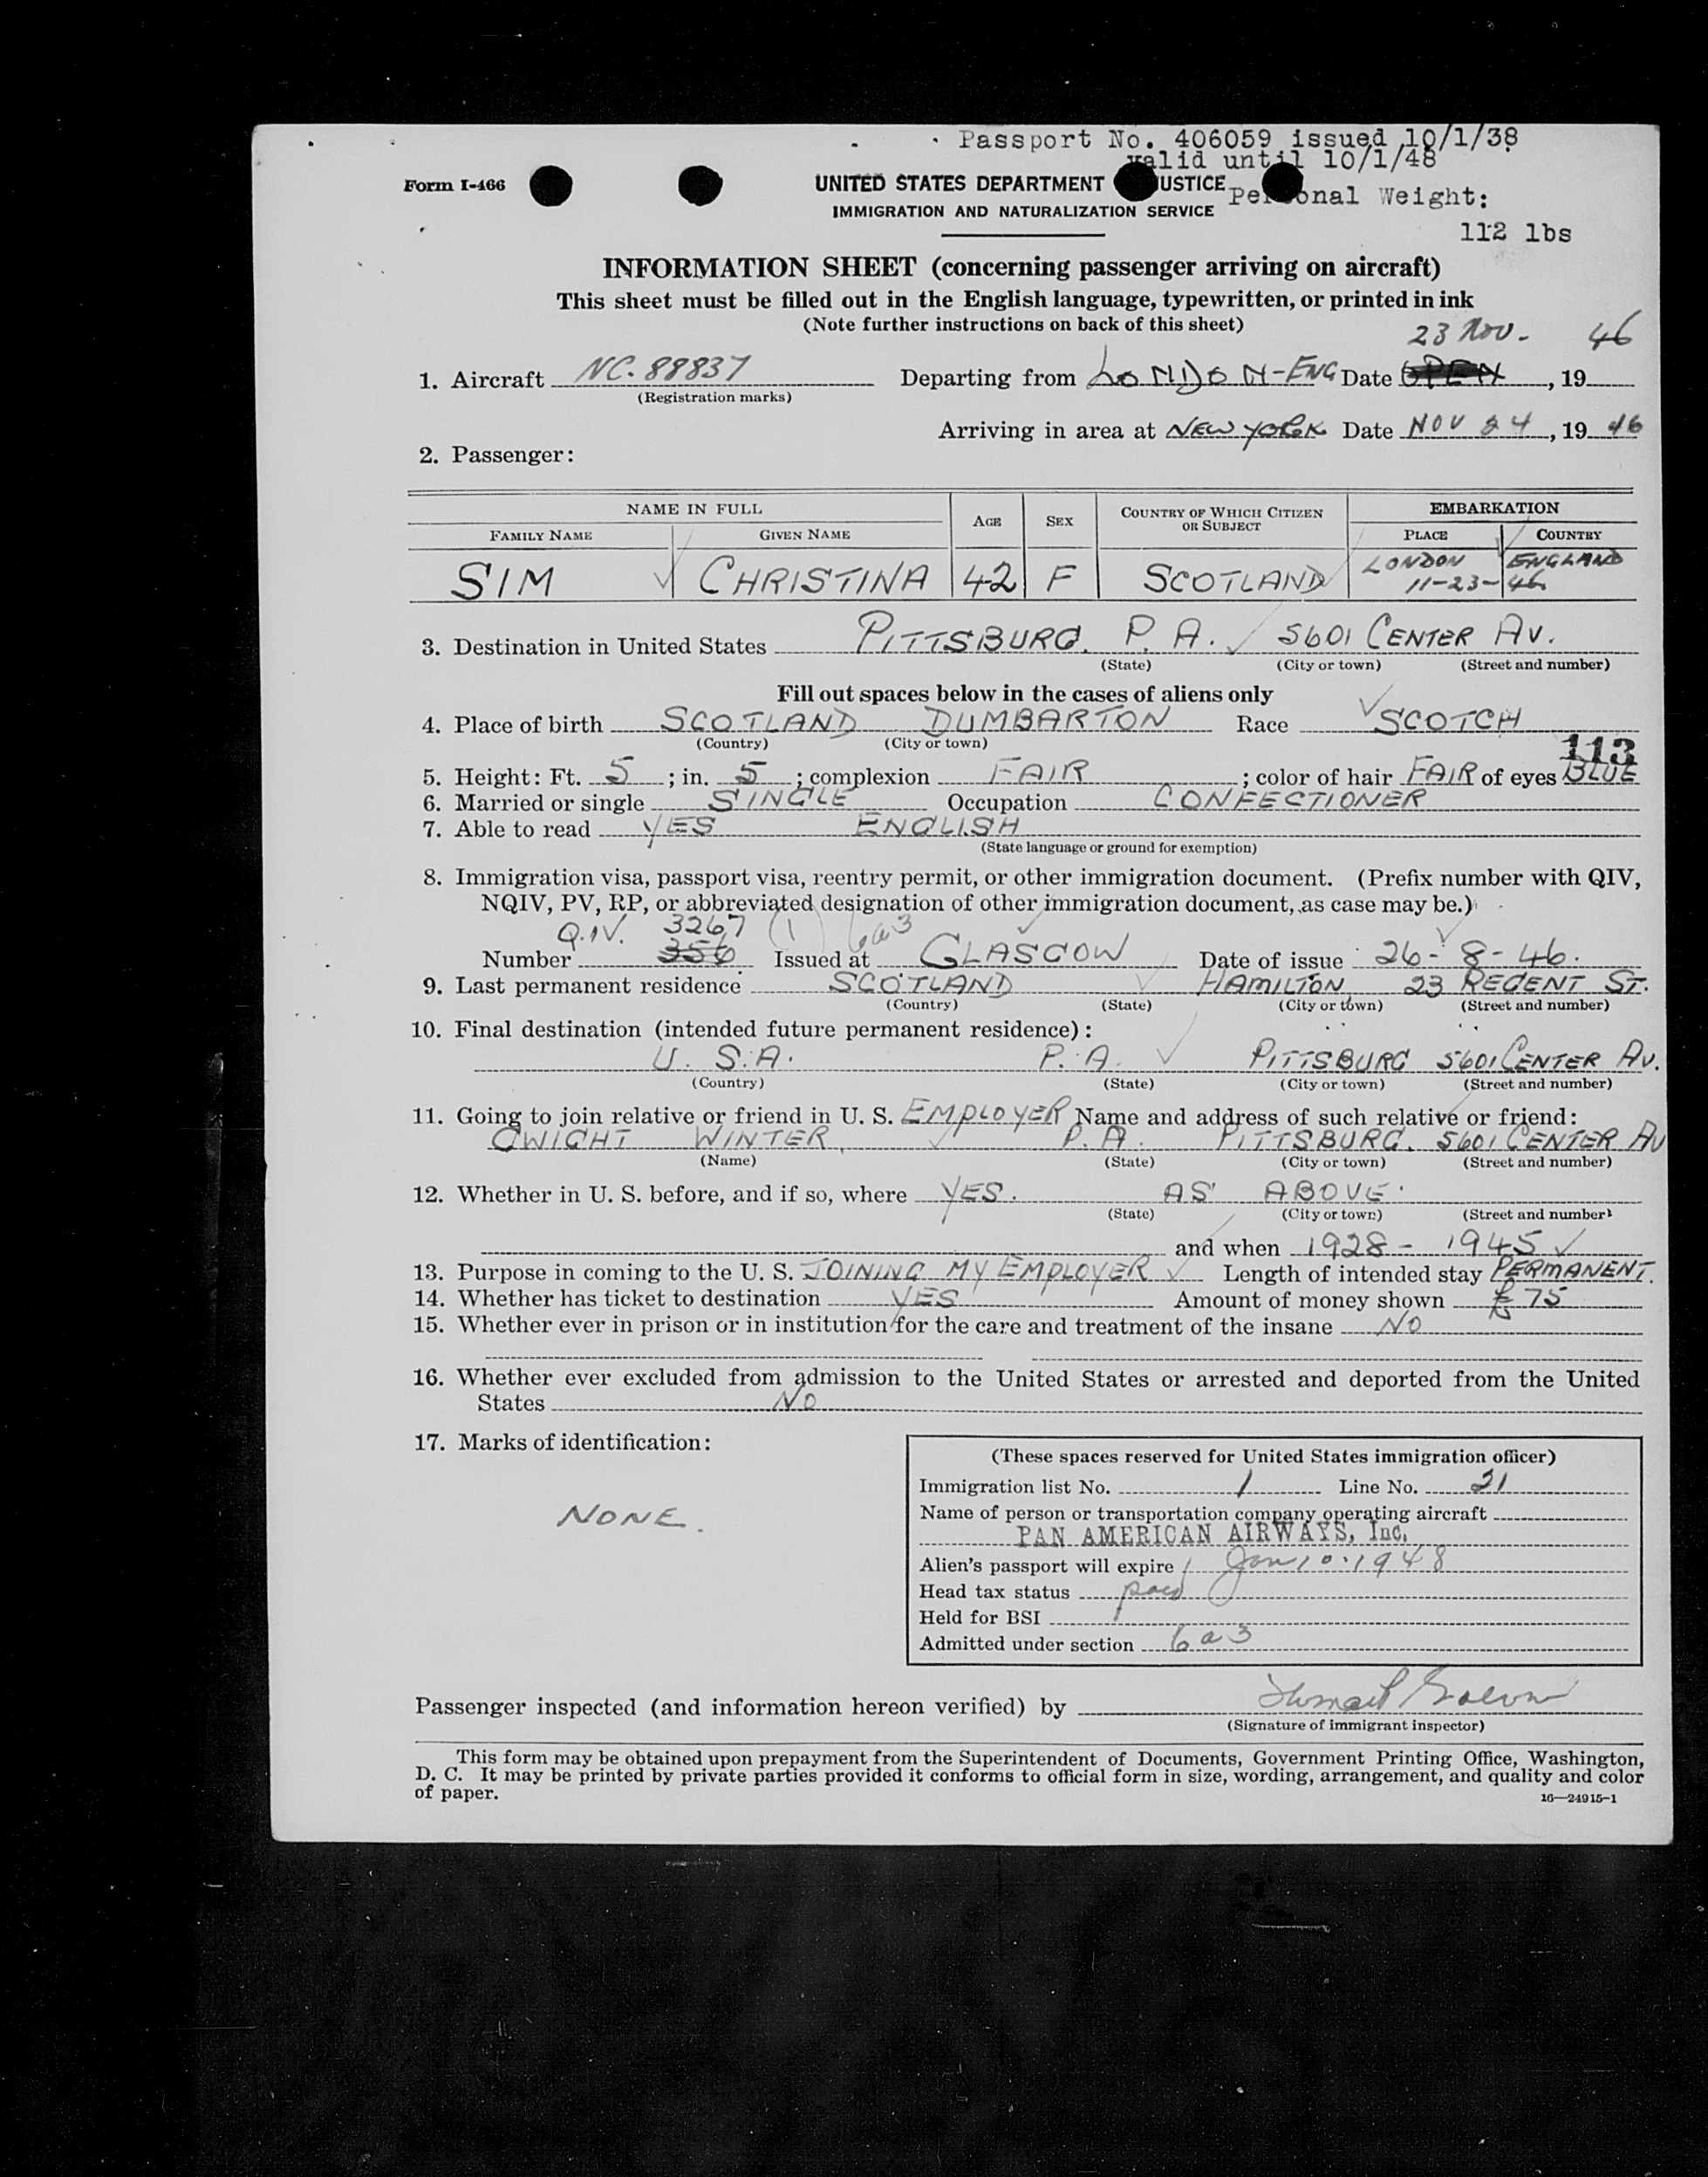 Passport No. 406059 issued 10/1/38
valid until 10/1/48
Form I-466
UNITED STATES DEPARTMENT USTICE
Personal Weight:
IMMIGRATION AND NATURALIZATION SERVICE
112 lbs
INFORMATION SHEET (concerning passenger arriving on aircraft)
This sheet must be filled out in the English language, typewritten, or printed in ink
(Note further instructions on back of this sheet)
23 Nov. 46
1. Aircraft NC. 88837 Departing from LONDON-ENG Date OPEN, 19
(Registration marks)
Arriving in area at NEW YORK Date NOV 24, 19 46
2. Passenger:
NAME IN FULL AGE SEX COUNTRY OF WHICH CITIZEN OR SUBJECT EMBARKATION
FAMILY NAME GIVEN NAME PLACE COUNTRY
SIM CHRISTINA 42 F SCOTLAND LONDON ENGLAND
11-23-46
3. Destination in United States PITTSBURG. P. A. 5601 CENTER AV.
(State) (City or town) (Street and number)
Fill out spaces below in the cases of aliens only
4. Place of birth SCOTLAND DUMBARTON Race SCOTCH
(Country) (City or town)
113
5. Height: Ft. 5; in. 5; complexion FAIR; color of hair FAIR of eyes BLUE
6. Married or single SINGLE Occupation CONFECTIONER
7. Able to read YES ENGLISH
(State language or ground for exemption)
8. Immigration visa, passport visa, reentry permit, or other immigration document. (Prefix number with QIV,
NQIV, PV, RP, or abbreviated designation of other immigration document, as case may be.)
Q.IV. 3267 (1) 6a3
Number 356 Issued at GLASGOW Date of issue 26-8-46.
9. Last permanent residence SCOTLAND HAMILTON 23 REGENT ST.
(Country) (State) (City or town) (Street and number)
10. Final destination (intended future permanent residence):
U. S. A. P. A. PITTSBURG 5601 CENTER AV.
(Country) (State) (City or town) (Street and number)
11. Going to join relative or friend in U. S. EMPLOYER Name and address of such relative or friend:
DWIGHT WINTER, P. A. PITTSBURG. 5601 CENTER AV
(Name) (State) (City or town) (Street and number)
12. Whether in U. S. before, and if so, where YES. AS ABOVE.
(State) (City or town) (Street and number)
and when 1928 - 1945
13. Purpose in coming to the U. S. JOINING MY EMPLOYER Length of intended stay PERMANENT.
14. Whether has ticket to destination YES Amount of money shown £ 75
15. Whether ever in prison or in institution for the care and treatment of the insane NO
16. Whether ever excluded from admission to the United States or arrested and deported from the United
States NO
17. Marks of identification:
NONE.
(These spaces reserved for United States immigration officer)
Immigration list No. 1 Line No. 21
Name of person or transportation company operating aircraft
PAN AMERICAN AIRWAYS, Inc.
Alien's passport will expire Jan 10. 1948
Head tax status paid
Held for BSI
Admitted under section 6a3
Passenger inspected (and information hereon verified) by
(Signature of immigrant inspector)
This form may be obtained upon prepayment from the Superintendent of Documents, Government Printing Office, Washington,
D. C. It may be printed by private parties provided it conforms to official form in size, wording, arrangement, and quality and color
of paper.
16—24915-1